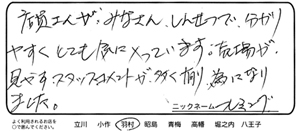 店員さんがみなさん、しんせつで、分かり
やすくとても気に入っています。広場が、
見やすく、スタッフコメントが多く有り、為になり
ました。
ニックネーム
よく利用されるお店を
○で囲んでください。
立川 小作 羽村 昭島 青梅 高幡 堀之内 八王子